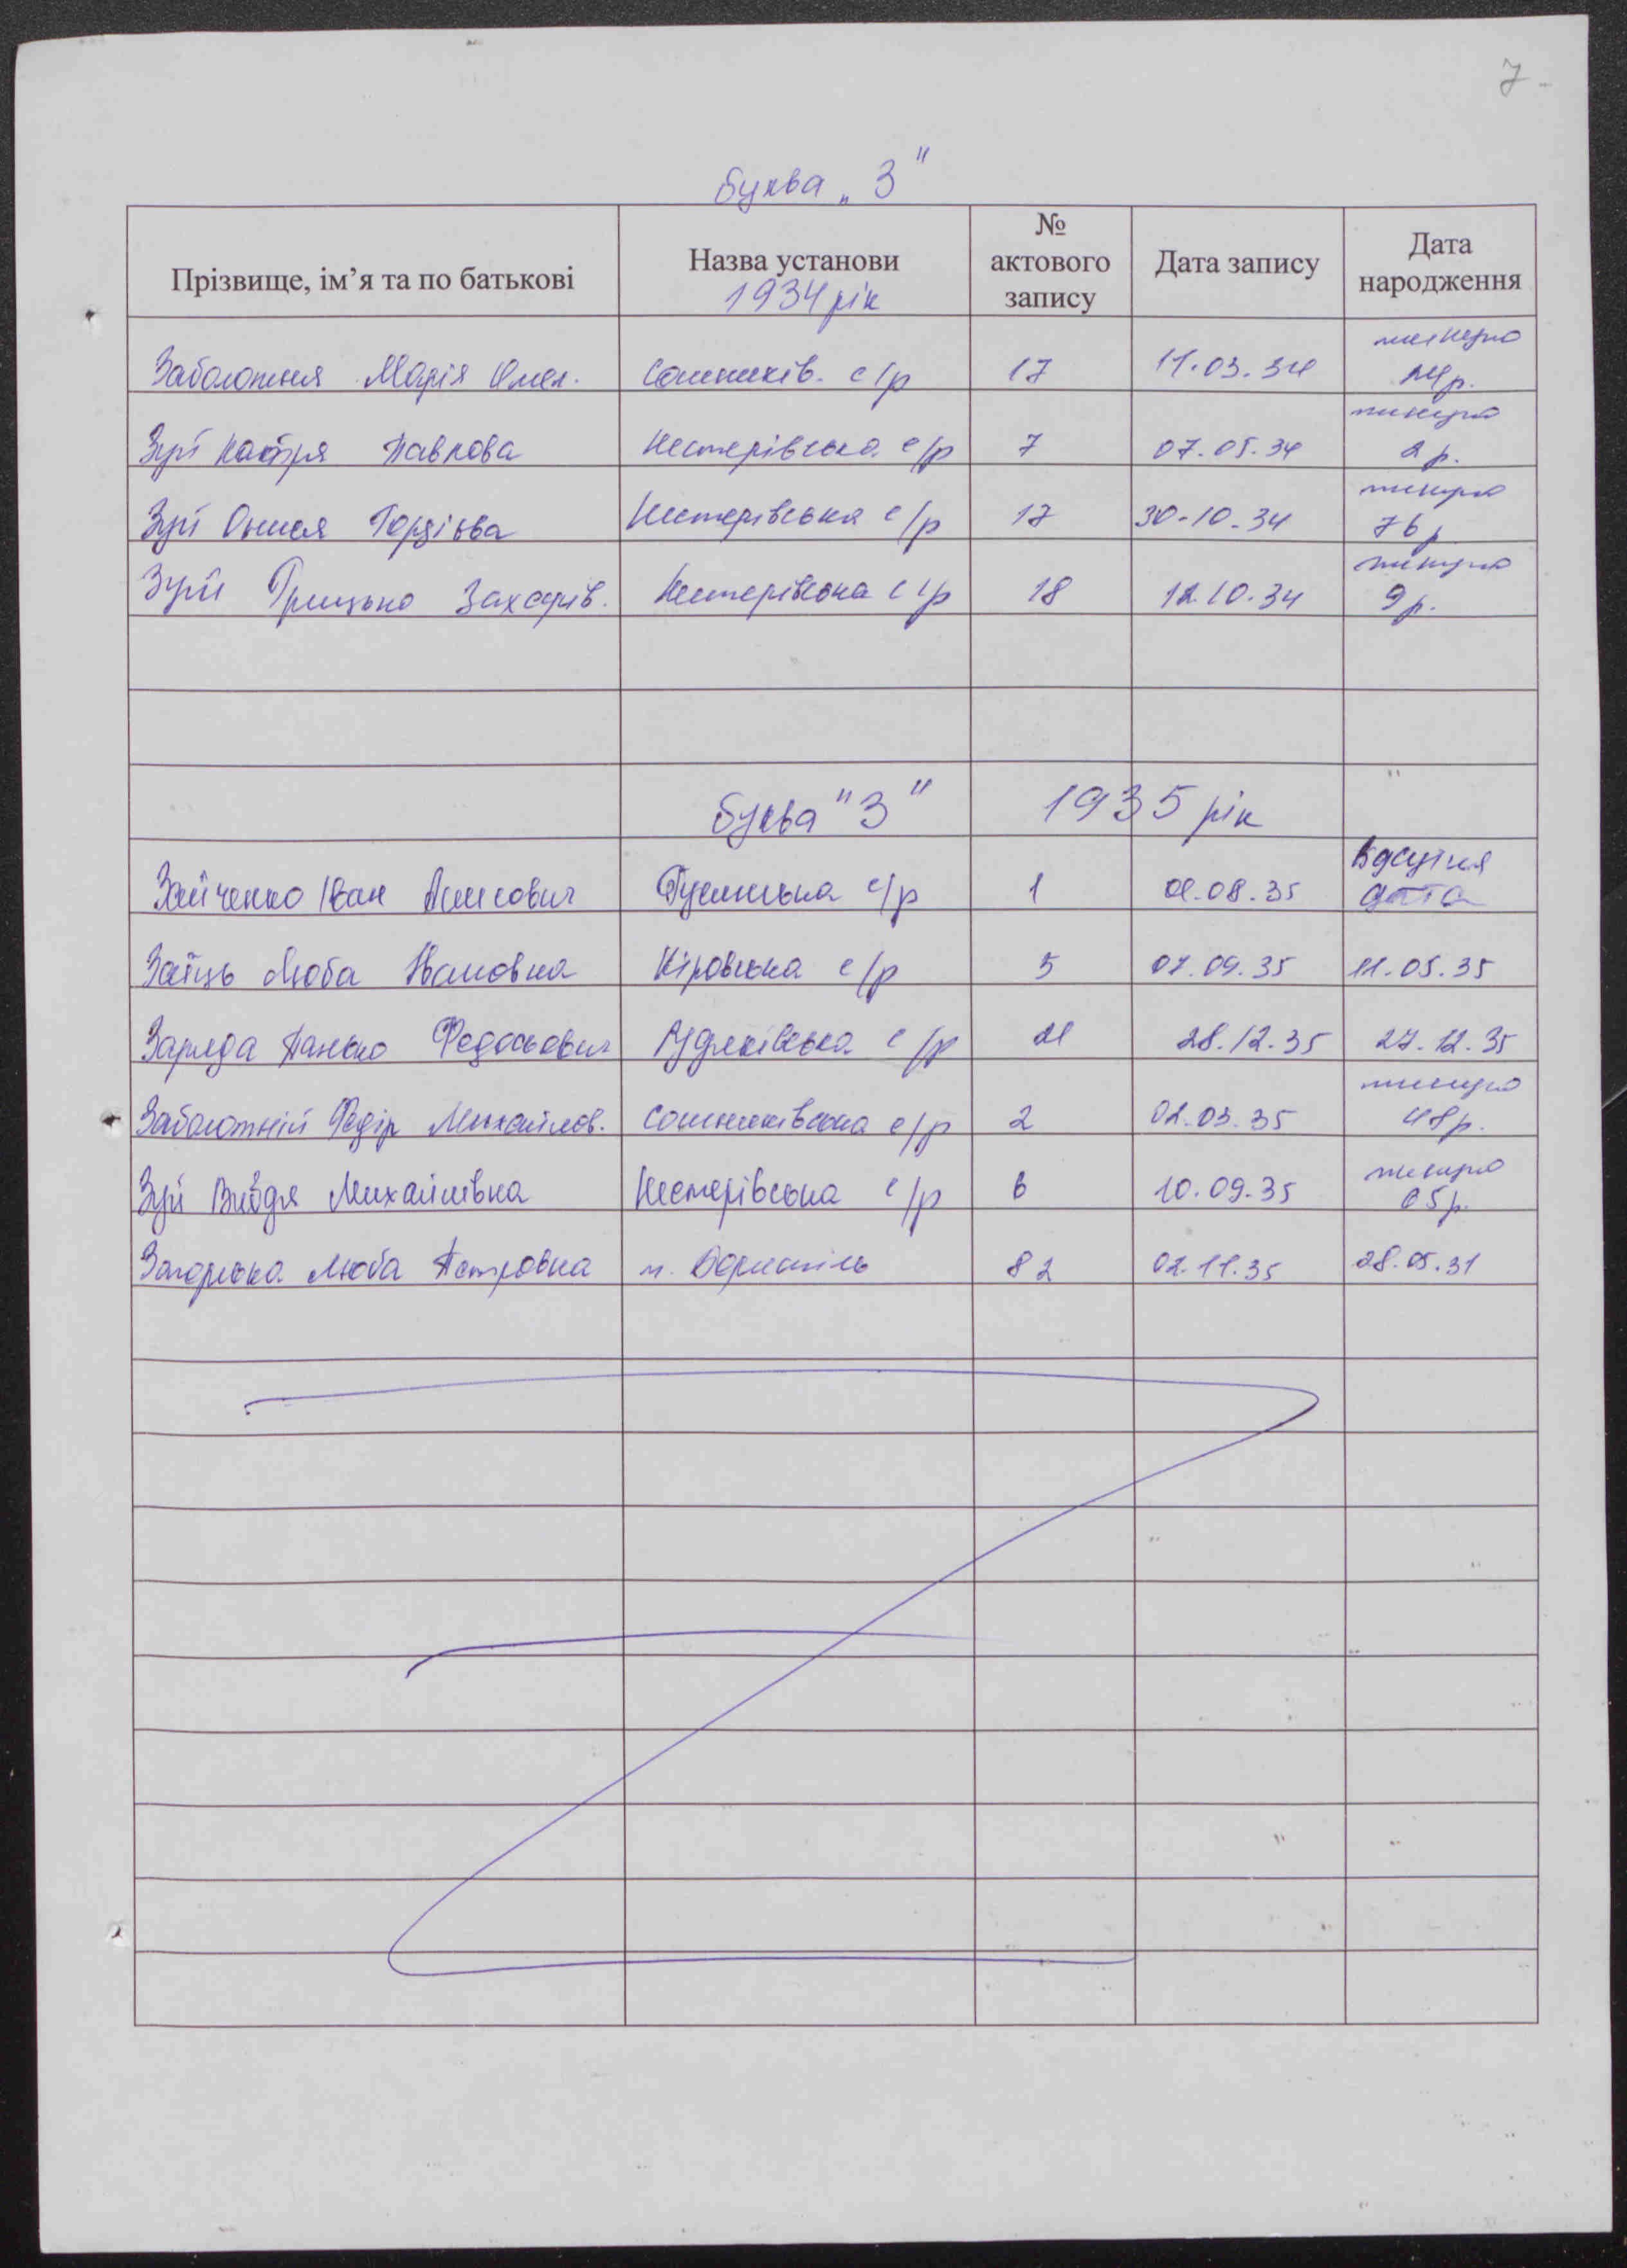 7
буква „З"
Прізвище, ім'я та по батькові | Назва установи 1934 рік | № актового запису | Дата запису | Дата народження
Заболотня Марія Омел. | Сошників. с/р | 17 | 11.03.34 | минуло р.
Зуй Катря Павлова | Нестерівська с/р | 7 | 07.05.34 | минуло 2 р.
Зуй Онися Гордієва | Нестерівська с/р | 17 | 30.10.34 | минуло 76 р
Зуй Грицько Захарів. | Нестерівська с/р | 18 | 12.10.34 | минуло 9 р.
буква "З" 1935 рік
Зайченко Іван | с/р | 1 | 08.35 | дата
Заїць Люба Івановна | Кіровська с/р | 5 | 07.09.35 | 11.05.35
Панько Федосьович | Рудяківська с/р | 21 | 28.12.35 | 27.12.35
Заболотній Федір Михайлов. | Сошниківська с/р | 2 | 02.03.35 | минуло 48 р.
Зуй Михайлівна | Нестерівська с/р | 6 | 10.09.35 | минуло 65 р.
Загорська Люба Петровна | м. Бориспіль | 82 | 02.11.35 | 28.05.31